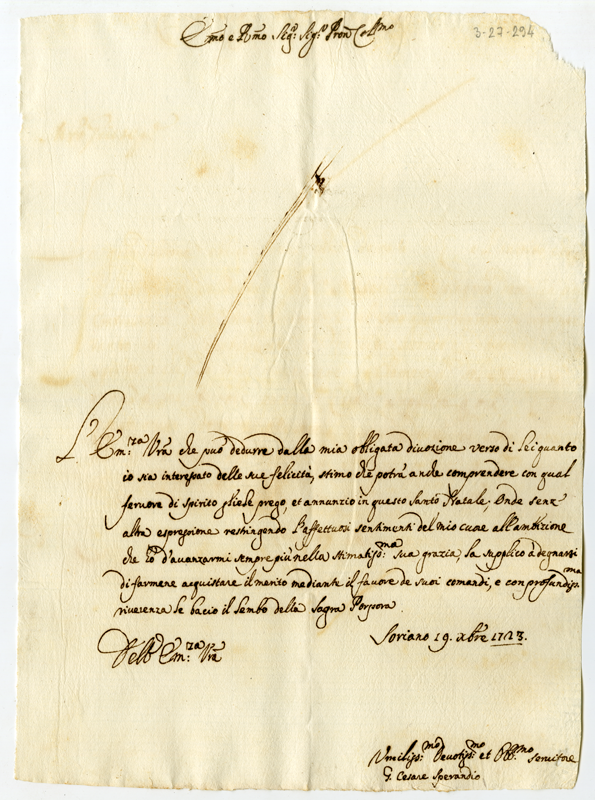 3-27-294
Emo e Rmo Sigr: Sigr Pron Colmo
L'Em:za Vra che può dedurre dalla mia obligata divozione verso di Lei quanto
io sia interessato delle sue felicità, stimo che potrà anche comprendere con qual
fervore di spirito gliele prego, et annunzio in questo Santo Natale, Onde senz'
altra espressione restingendo l'affettuosi sentimenti del mio cuore all'ambizione
che ho d'avanzarmi sempre più nella stimatiss:ma sua grazia, la supplico a degnarsi
di farmene acquistare il merito mediante il favore de suoi comandi, e con profundiss:ma
riverenza le bacio il lembo della Sagra Porpora.
Dell'Em:za Vra
Soriano 19. Xbre 1723.
Umiliss:mo Devotiss:mo et Obb:mo servitore
Cesare Sperandio